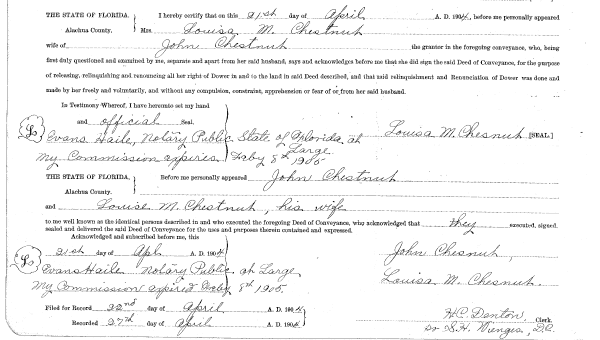 THE STATE OF FLORIDA. I hereby certify that on this 21st day of April A. D. 1904, before me personally appeared
Alachua County. Mrs. Louisa M. Chestnut
wife of John Chestnut the grantor in the foregoing conveyance, who, being
first duly questioned and examined by me, separate and apart from her said husband, says and acknowledges before me that she did sign the said Deed of Conveyance, for the purpose
of releasing, relinquishing and renouncing all her right of Dower in and to the land in said Deed described, and that said relinquishment and Renunciation of Dower was done and
made by her freely and voluntarily, and without any compulsion, constraint, apprehension or fear of or from her said husband.
In Testimony Whereof, I have hereunto set my hand
and official Seal.
Evans Haile, Notary Public, State of Florida at Large Louisa M. Chesnut [SEAL]
My Commission expires 8th 1905
THE STATE OF FLORIDA. Before me personally appeared John Chestnut
Alachua County.
and Louise M. Chestnut, his wife
to me well known as the identical persons described in and who executed the foregoing Deed of Conveyance, who acknowledged that they executed, signed,
sealed and delivered the said Deed of Conveyance for the uses and purposes therein contained and expressed.
Acknowledged and subscribed before me, this
21st day of Apl A. D. 1904 John Chesnut,
Evans Haile Notary Public at Large Louisa M. Chesnut.
My Commission expired 8th 1905.
Filed for Record 22nd day of April A. D. 1904 H.C. Denton, Clerk.
Recorded 27th day of April A. D. 1904 S.H. Wienges, D.C.